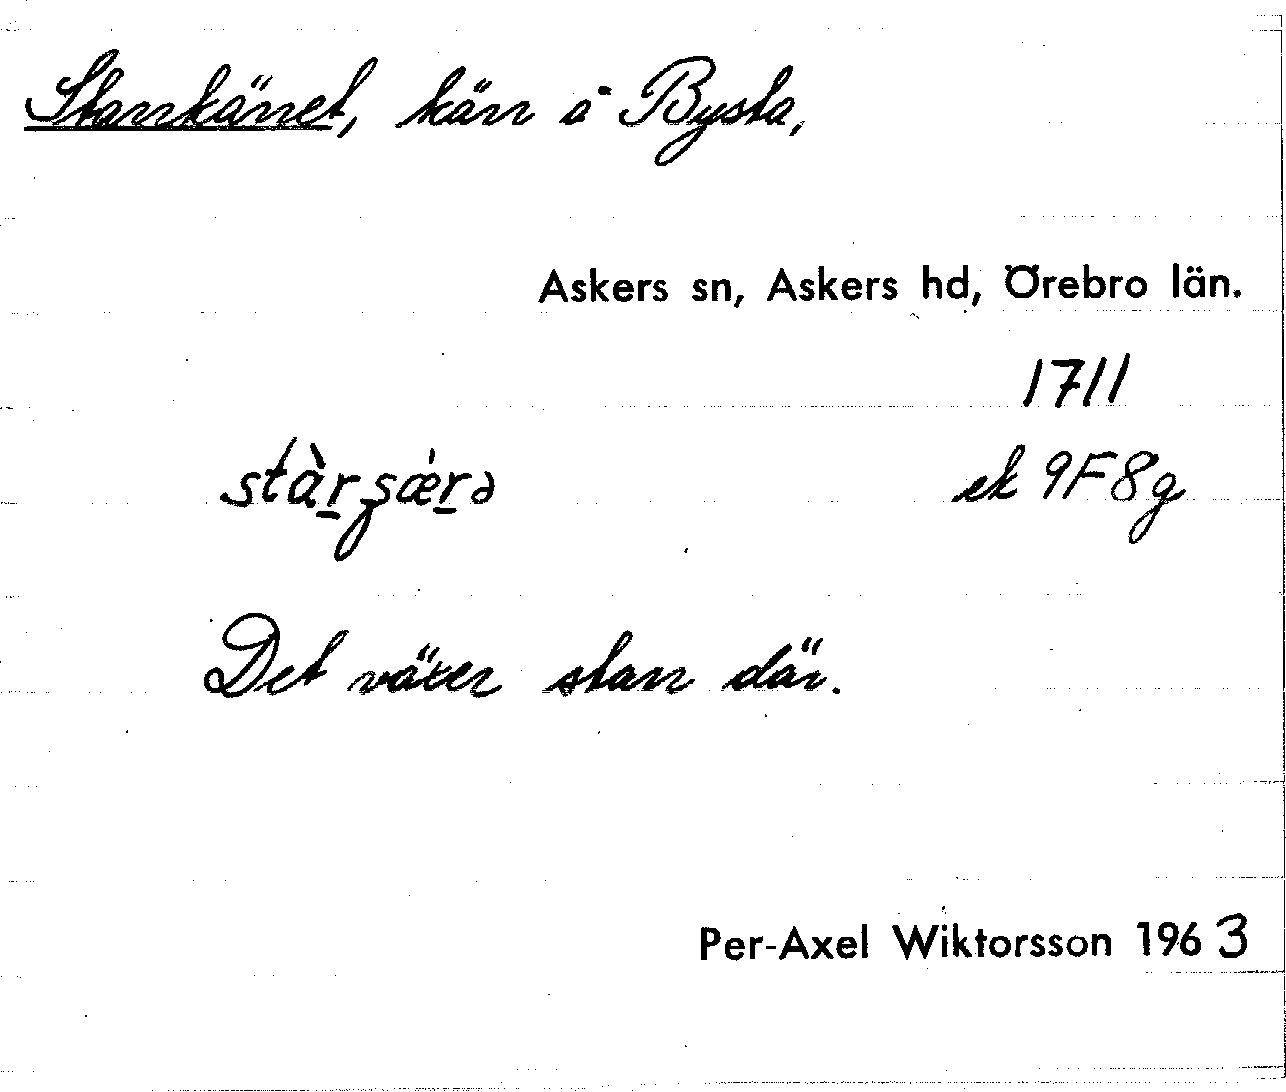 Starrkärret, kärr å Bysta,
Askers sn, Askers hd, Örebro län.
1711
ek 9F8g
Det växer starr där.
Per-Axel Wiktorsson 1963